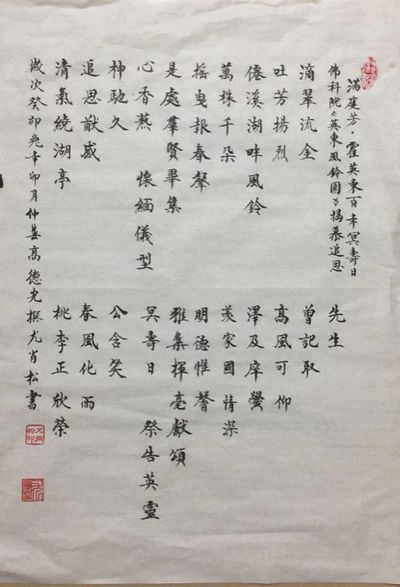 滿庭芳·霍英東百年冥壽日
佛科院《英東風鈴園》揭幕追思
滴翠流金
吐芳揚烈
僊溪湖畔風鈴
萬株千朵
搖曳報春聲
是處羣賢畢集
心香爇 懷緬儀型
神馳久
追思猷感
清氣繞湖亭
先生
曾記取
高風可仰
澤及庠黌
羨家國情深
明德惟馨
雅集揮毫獻頌
冥壽日 祭告英靈
公含笑
春風化雨
桃李正欣榮
歲次癸卯兔年卯月仲萅高德光撰尤肖松書